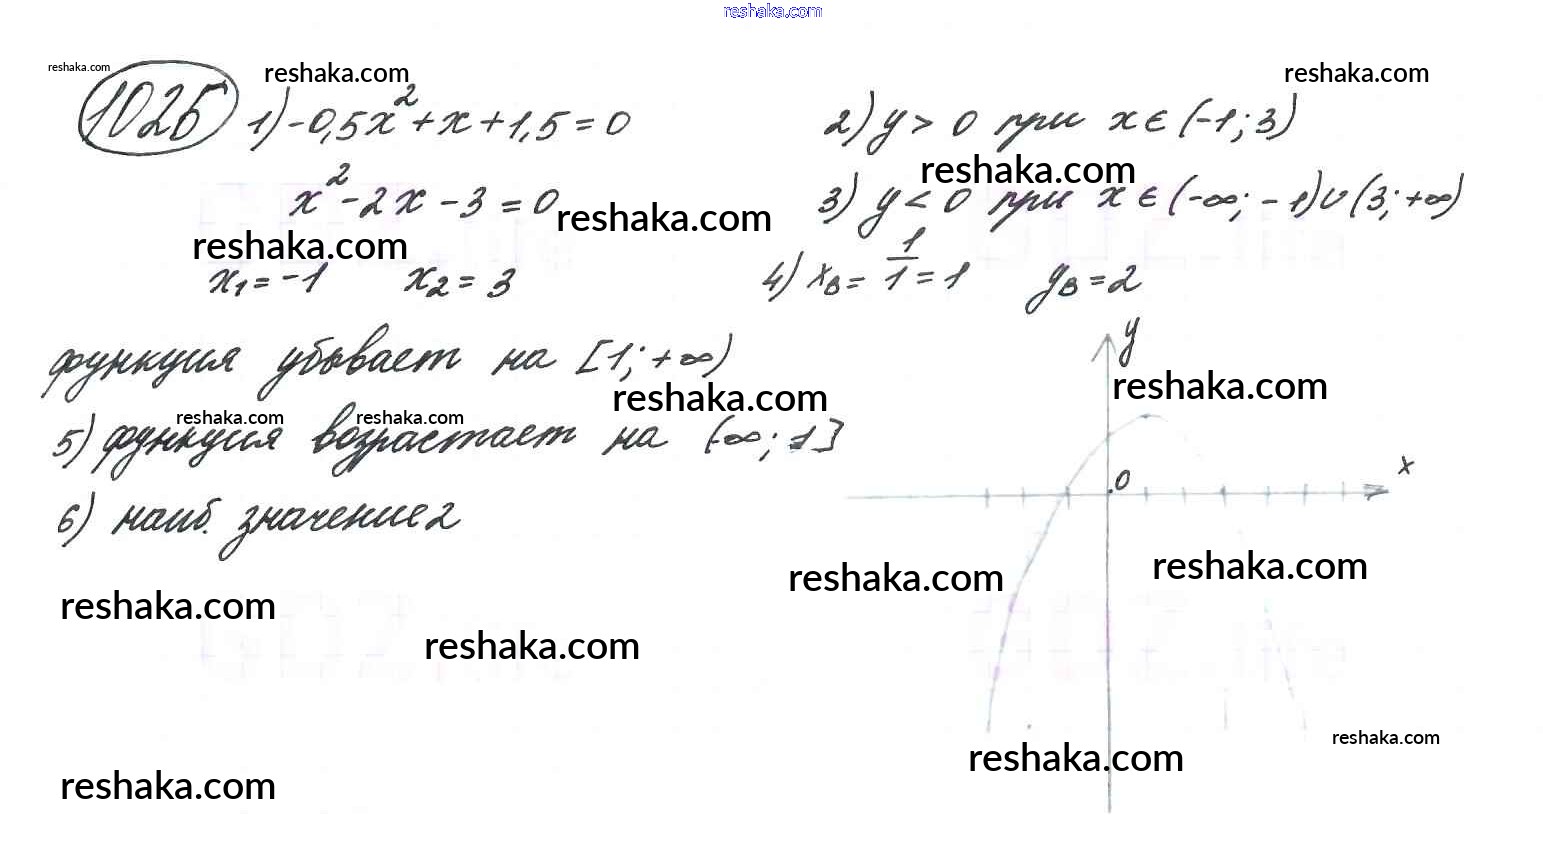 reshaka.com
reshaka.com reshaka.com reshaka.com
1025 1) -0,5x² + x + 1,5 = 0
x² - 2x - 3 = 0
reshaka.com
reshaka.com
x₁ = -1 x₂ = 3
2) y > 0 при x ∈ (-1; 3)
reshaka.com
3) y < 0 при x ∈ (-∞; -1) ∪ (3; +∞)
4) xв = 1/1 = 1 yв = 2
функция убывает на [1; +∞)
reshaka.com
reshaka.com reshaka.com
5) функция возрастает на (-∞; 1]
6) наиб. значение 2
y
reshaka.com
x
0
reshaka.com reshaka.com
reshaka.com
reshaka.com
reshaka.com
reshaka.com
reshaka.com